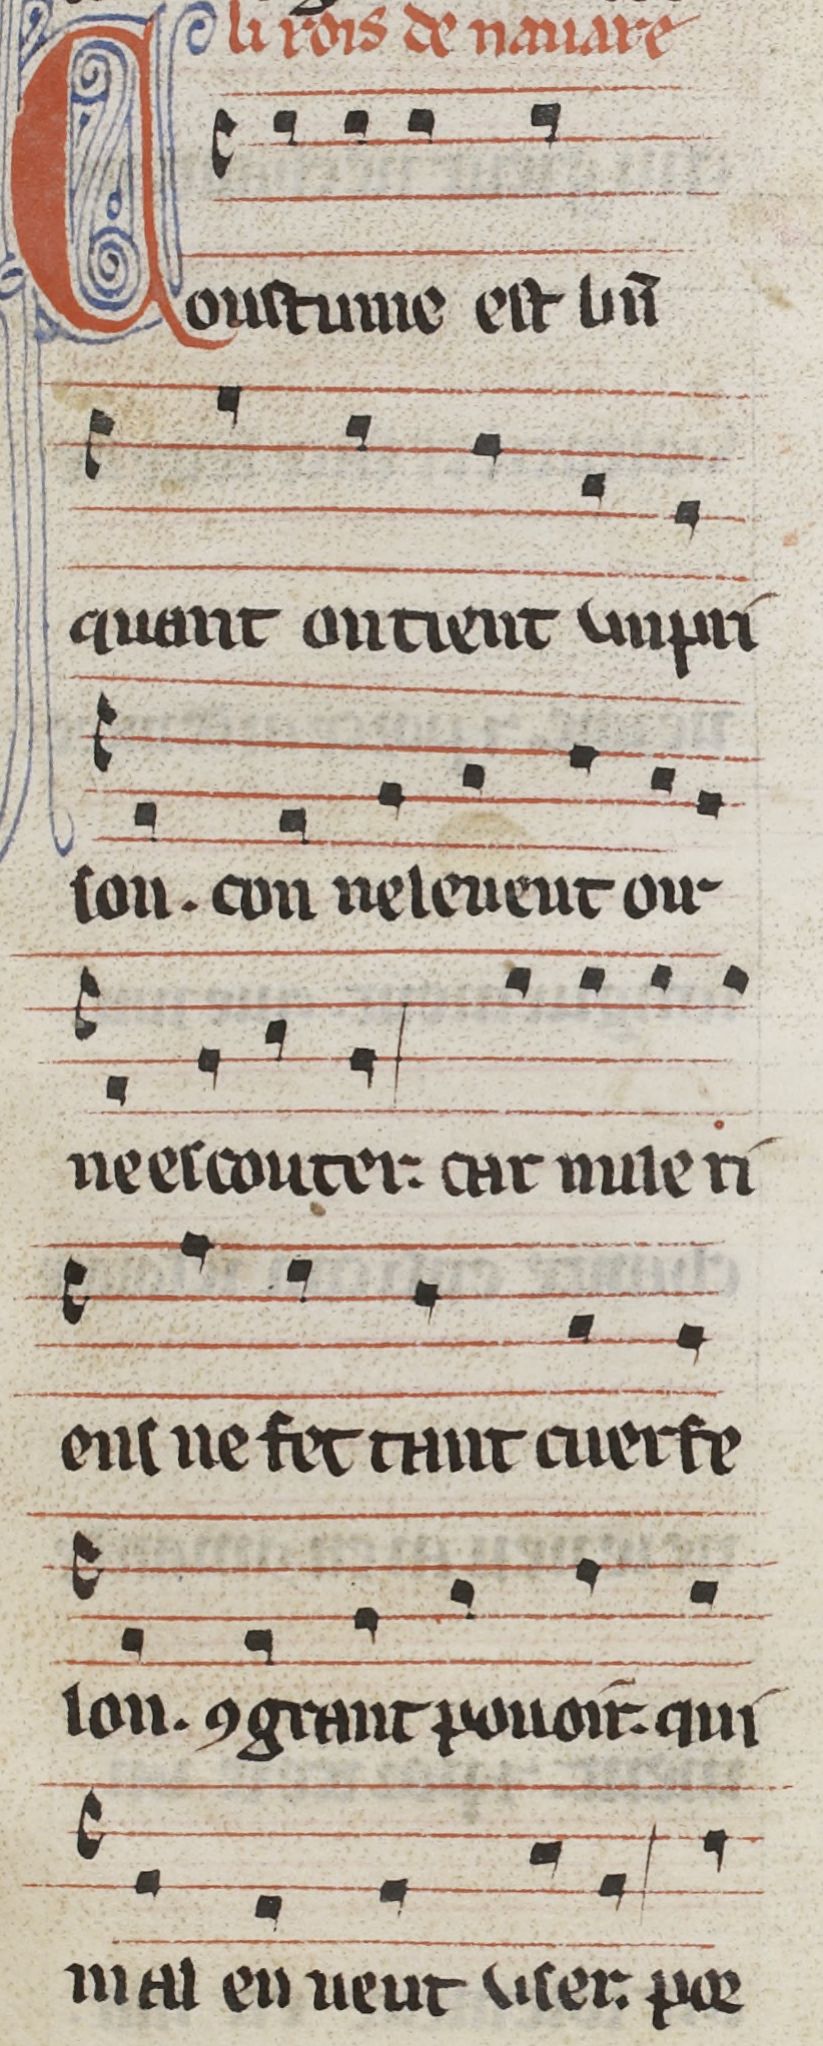 li rois de nauare
Coustume est bn̄
quant on tient .i. un pri
son. con ne le ueut oir
ne escouter. car nule ri
ens ne fet tant cuer fe
lon. ꝯ grant pouoir. qui
mal en ueut user. por